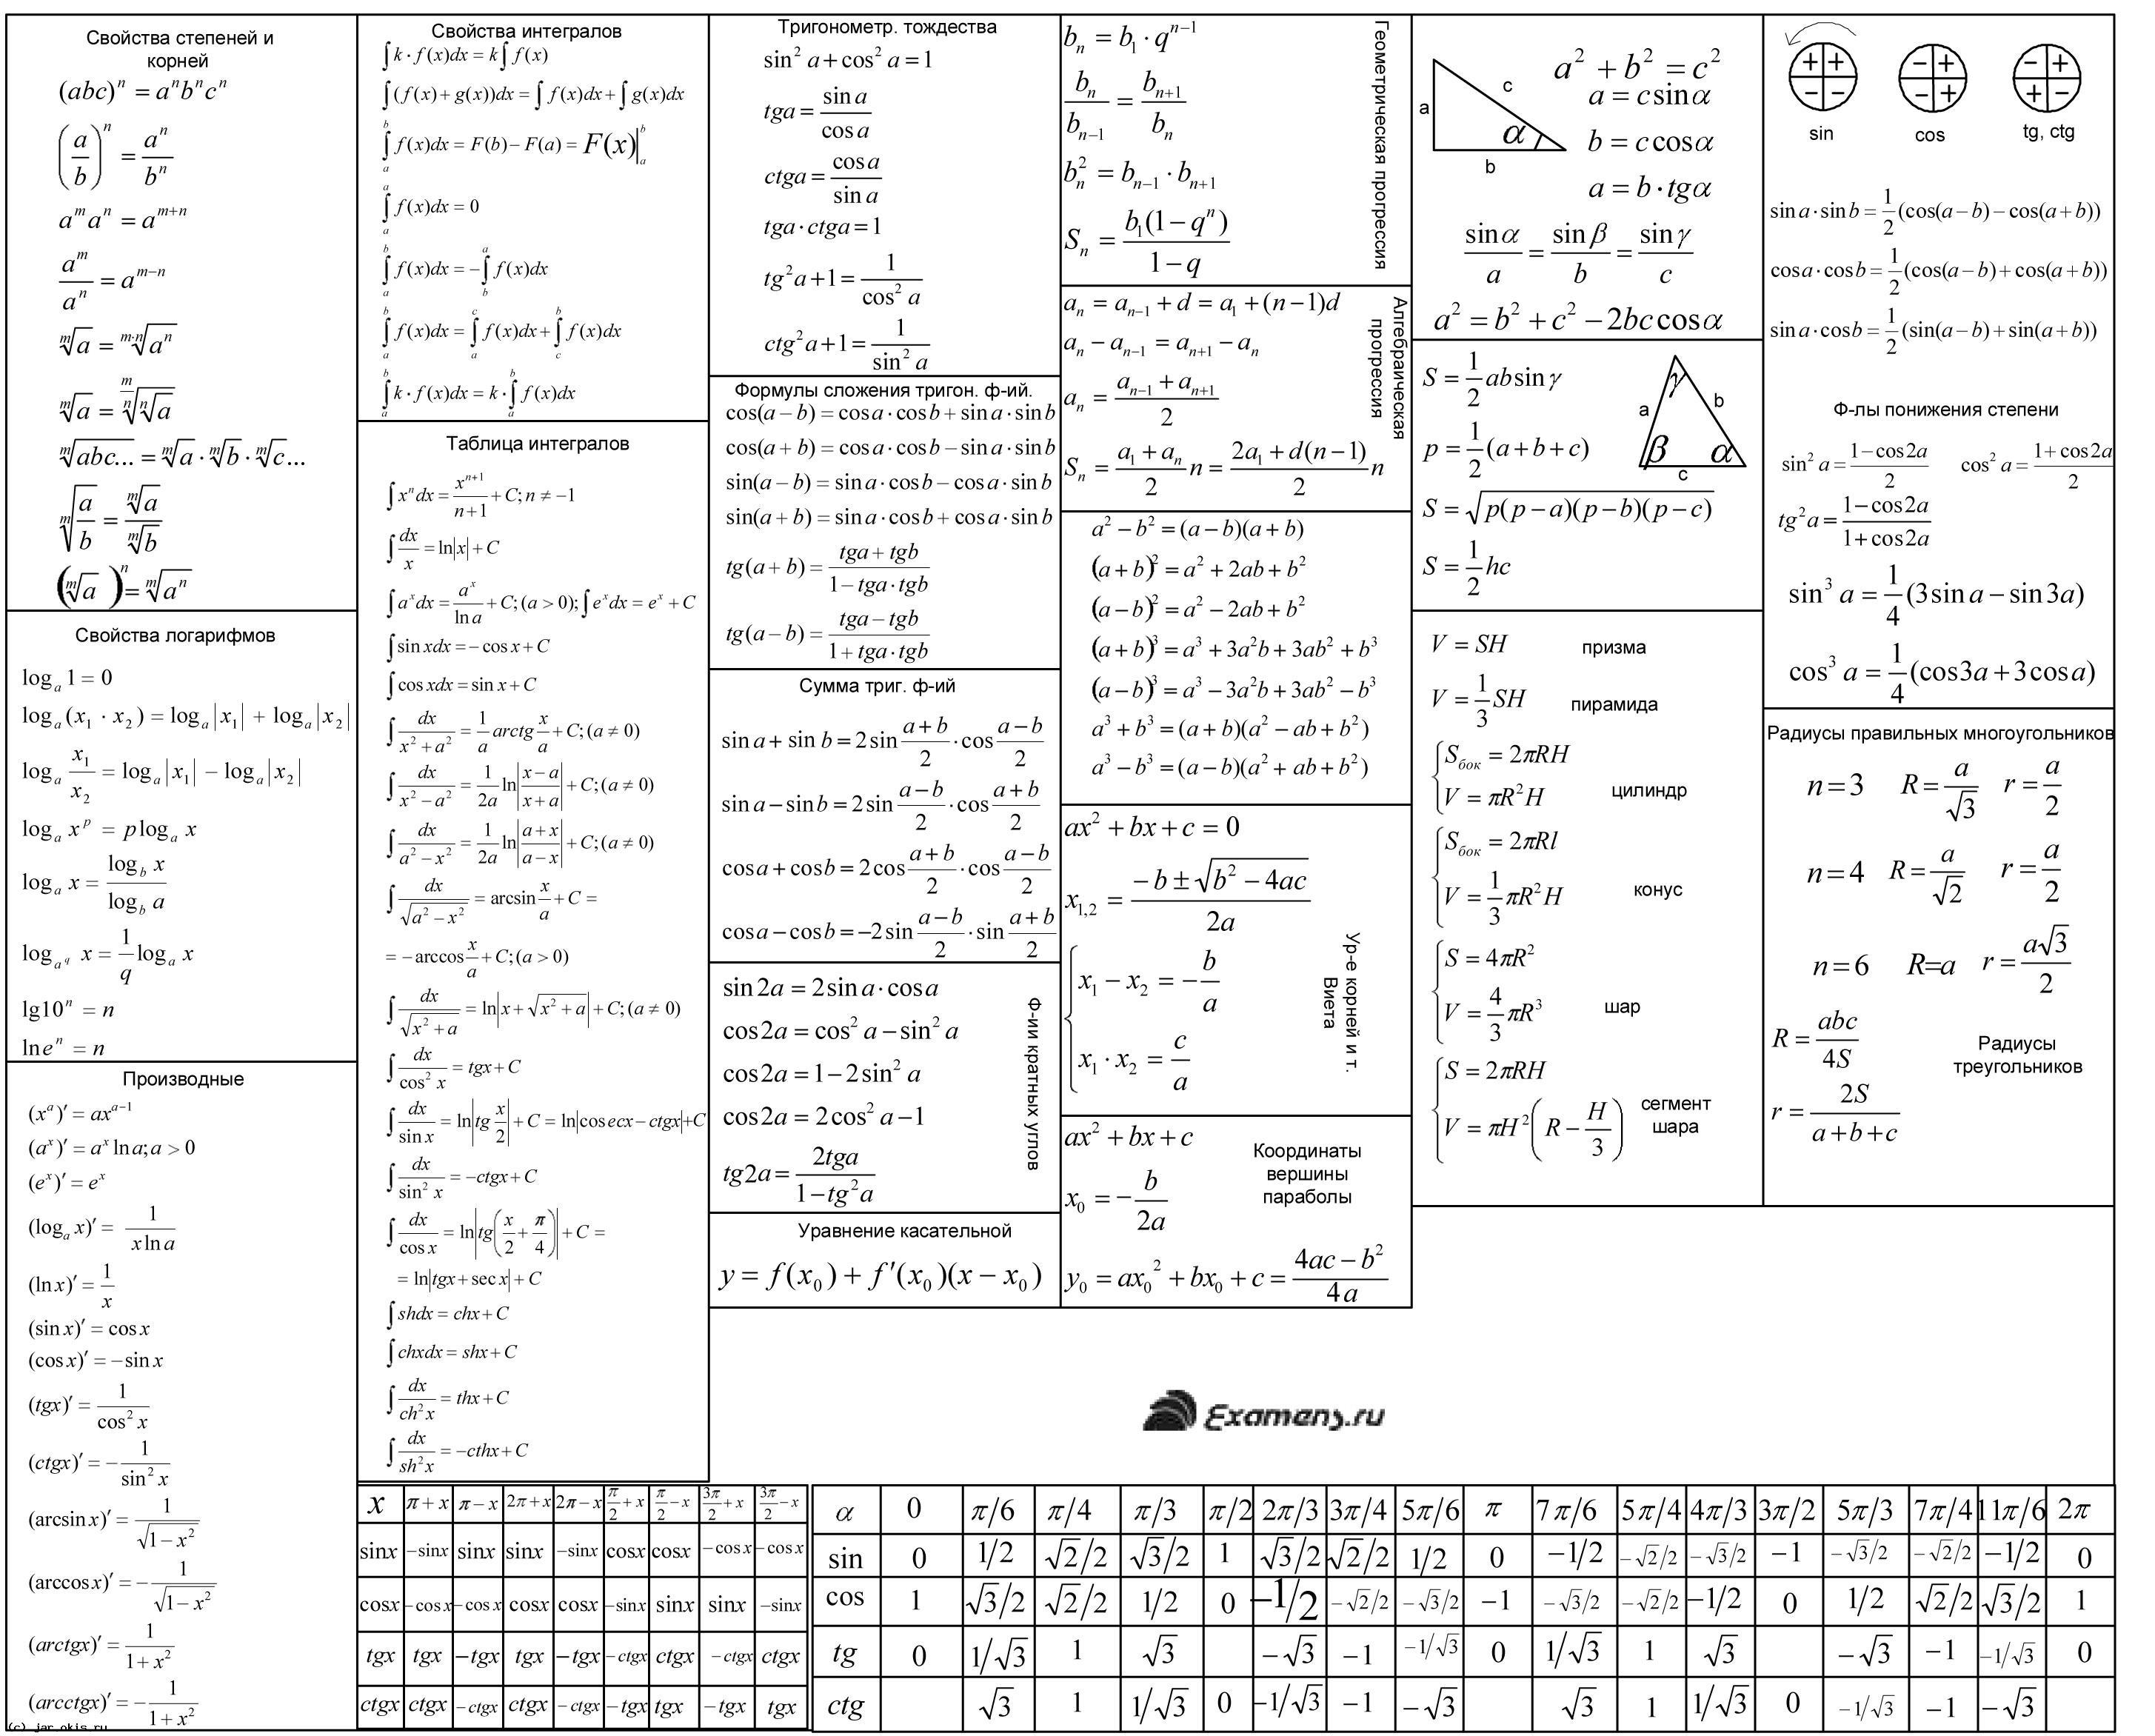 Свойства степеней и
корней
(abc)ⁿ = aⁿbⁿcⁿ
(a/b)ⁿ = aⁿ/bⁿ
aᵐaⁿ = aᵐ⁺ⁿ
aᵐ/aⁿ = aᵐ⁻ⁿ
ᵐ√a = ᵐ·ⁿ√aⁿ
ᵐ√a = ᵐ⁄ⁿ√ⁿ√a
ᵐ√abc... = ᵐ√a · ᵐ√b · ᵐ√c...
ᵐ√(a/b) = ᵐ√a / ᵐ√b
(ᵐ√a)ⁿ = ᵐ√aⁿ
Свойства логарифмов
logₐ 1 = 0
logₐ(x₁ · x₂) = logₐ|x₁| + logₐ|x₂|
logₐ x₁/x₂ = logₐ|x₁| − logₐ|x₂|
logₐ xᵖ = p logₐ x
logₐ x = log_b x / log_b a
log_{a^q} x = 1/q logₐ x
lg10ⁿ = n
ln eⁿ = n
Производные
(xᵃ)′ = axᵃ⁻¹
(aˣ)′ = aˣ ln a; a > 0
(eˣ)′ = eˣ
(logₐ x)′ = 1/(x ln a)
(ln x)′ = 1/x
(sin x)′ = cos x
(cos x)′ = −sin x
(tgx)′ = 1/cos² x
(ctgx)′ = −1/sin² x
(arcsin x)′ = 1/√(1−x²)
(arccos x)′ = −1/√(1−x²)
(arctgx)′ = 1/(1+x²)
(arcctgx)′ = −1/(1+x²)
(c) jar.okis.ru
Свойства интегралов
∫k·f(x)dx = k∫f(x)
∫(f(x)+g(x))dx = ∫f(x)dx + ∫g(x)dx
∫ₐᵇ f(x)dx = F(b) − F(a) = F(x)|ₐᵇ
∫ₐᵃ f(x)dx = 0
∫ₐᵇ f(x)dx = −∫_b^a f(x)dx
∫ₐᵇ f(x)dx = ∫ₐᶜ f(x)dx + ∫_c^b f(x)dx
∫ₐᵇ k·f(x)dx = k·∫ₐᵇ f(x)dx
Таблица интегралов
∫xⁿdx = xⁿ⁺¹/(n+1) + C; n ≠ −1
∫dx/x = ln|x| + C
∫aˣdx = aˣ/ln a + C; (a > 0); ∫eˣdx = eˣ + C
∫sin xdx = −cos x + C
∫cos xdx = sin x + C
∫dx/(x²+a²) = 1/a arctg x/a + C; (a ≠ 0)
∫dx/(x²−a²) = 1/2a ln|(x−a)/(x+a)| + C; (a ≠ 0)
∫dx/(a²−x²) = 1/2a ln|(a+x)/(a−x)| + C; (a ≠ 0)
∫dx/√(a²−x²) = arcsin x/a + C =
= −arccos x/a + C; (a > 0)
∫dx/√(x²+a) = ln|x + √(x²+a)| + C; (a ≠ 0)
∫dx/cos² x = tgx + C
∫dx/sin x = ln|tg x/2| + C = ln|cos ecx − ctgx| + C
∫dx/sin² x = −ctgx + C
∫dx/cos x = ln|tg(x/2 + π/4)| + C =
= ln|tgx + sec x| + C
∫shdx = chx + C
∫chxdx = shx + C
∫dx/ch²x = thx + C
∫dx/sh²x = −cthx + C
Тригонометр. тождества
sin² a + cos² a = 1
tga = sin a / cos a
ctga = cos a / sin a
tga · ctga = 1
tg²a + 1 = 1/cos² a
ctg²a + 1 = 1/sin² a
Формулы сложения тригон. ф-ий.
cos(a − b) = cos a · cos b + sin a · sin b
cos(a + b) = cos a · cos b − sin a · sin b
sin(a − b) = sin a · cos b − cos a · sin b
sin(a + b) = sin a · cos b + cos a · sin b
tg(a + b) = (tga + tgb)/(1 − tga · tgb)
tg(a − b) = (tga − tgb)/(1 + tga · tgb)
Сумма триг. ф-ий
sin a + sin b = 2 sin (a+b)/2 · cos (a−b)/2
sin a − sin b = 2 sin (a−b)/2 · cos (a+b)/2
cos a + cos b = 2 cos (a+b)/2 · cos (a−b)/2
cos a − cos b = −2 sin (a−b)/2 · sin (a+b)/2
sin 2a = 2 sin a · cos a
cos 2a = cos² a − sin² a
cos 2a = 1 − 2 sin² a
cos 2a = 2 cos² a − 1
tg2a = 2tga/(1 − tg²a)
Ф-ии кратных углов
Уравнение касательной
y = f(x₀) + f′(x₀)(x − x₀)
Геометрическая прогрессия
bₙ = b₁ · qⁿ⁻¹
bₙ/bₙ₋₁ = bₙ₊₁/bₙ
bₙ² = bₙ₋₁ · bₙ₊₁
Sₙ = b₁(1 − qⁿ)/(1 − q)
Алгебраическая
прогрессия
aₙ = aₙ₋₁ + d = a₁ + (n − 1)d
aₙ − aₙ₋₁ = aₙ₊₁ − aₙ
aₙ = (aₙ₋₁ + aₙ₊₁)/2
Sₙ = (a₁ + aₙ)/2 n = (2a₁ + d(n − 1))/2 n
a² − b² = (a − b)(a + b)
(a + b)² = a² + 2ab + b²
(a − b)² = a² − 2ab + b²
(a + b)³ = a³ + 3a²b + 3ab² + b³
(a − b)³ = a³ − 3a²b + 3ab² − b³
a³ + b³ = (a + b)(a² − ab + b²)
a³ − b³ = (a − b)(a² + ab + b²)
ax² + bx + c = 0
x₁,₂ = (−b ± √(b² − 4ac))/2a
x₁ − x₂ = −b/a
x₁ · x₂ = c/a
Ур-е корней и т.
Виета
ax² + bx + c
Координаты
вершины
параболы
x₀ = −b/2a
y₀ = ax₀² + bx₀ + c = (4ac − b²)/4a
a
c
b
α
a² + b² = c²
a = c sin α
b = c cos α
a = b · tgα
sin α/a = sin β/b = sin γ/c
a² = b² + c² − 2bc cos α
S = 1/2 ab sin γ
p = 1/2 (a + b + c)
S = √(p(p − a)(p − b)(p − c))
S = 1/2 hc
γ
a
b
β
α
c
V = SH призма
V = 1/3 SH пирамида
Sбок = 2πRH
V = πR²H
цилиндр
Sбок = 2πRl
V = 1/3 πR²H
конус
S = 4πR²
V = 4/3 πR³
шар
S = 2πRH
V = πH²(R − H/3)
сегмент
шара
+ + − −
− + − +
− + + −
sin cos tg, ctg
sin a · sin b = 1/2 (cos(a − b) − cos(a + b))
cos a · cos b = 1/2 (cos(a − b) + cos(a + b))
sin a · cos b = 1/2 (sin(a − b) + sin(a + b))
Ф-лы понижения степени
sin² a = (1 − cos 2a)/2 cos² a = (1 + cos 2a)/2
tg²a = (1 − cos 2a)/(1 + cos 2a)
sin³ a = 1/4 (3 sin a − sin 3a)
cos³ a = 1/4 (cos 3a + 3 cos a)
Радиусы правильных многоугольников
n = 3 R = a/√3 r = a/2
n = 4 R = a/√2 r = a/2
n = 6 R=a r = a√3/2
R = abc/4S
r = 2S/(a + b + c)
Радиусы
треугольников
Examens.ru
x π + x π − x 2π + x 2π − x π/2 + x π/2 − x 3π/2 + x 3π/2 − x
sinx −sinx sinx sinx −sinx cosx cosx −cosx −cosx
cosx −cosx −cosx cosx cosx −sinx sinx sinx −sinx
tgx tgx −tgx tgx −tgx −ctgx ctgx −ctgx ctgx
ctgx ctgx −ctgx ctgx −ctgx −tgx tgx −tgx tgx
α 0 π/6 π/4 π/3 π/2 2π/3 3π/4 5π/6 π 7π/6 5π/4 4π/3 3π/2 5π/3 7π/4 11π/6 2π
sin 0 1/2 √2/2 √3/2 1 √3/2 √2/2 1/2 0 −1/2 −√2/2 −√3/2 −1 −√3/2 −√2/2 −1/2 0
cos 1 √3/2 √2/2 1/2 0 −1/2 −√2/2 −√3/2 −1 −√3/2 −√2/2 −1/2 0 1/2 √2/2 √3/2 1
tg 0 1/√3 1 √3 −√3 −1 −1/√3 0 1/√3 1 √3 −√3 −1 −1/√3 0
ctg √3 1 1/√3 0 −1/√3 −1 −√3 √3 1 1/√3 0 −1/√3 −1 −√3